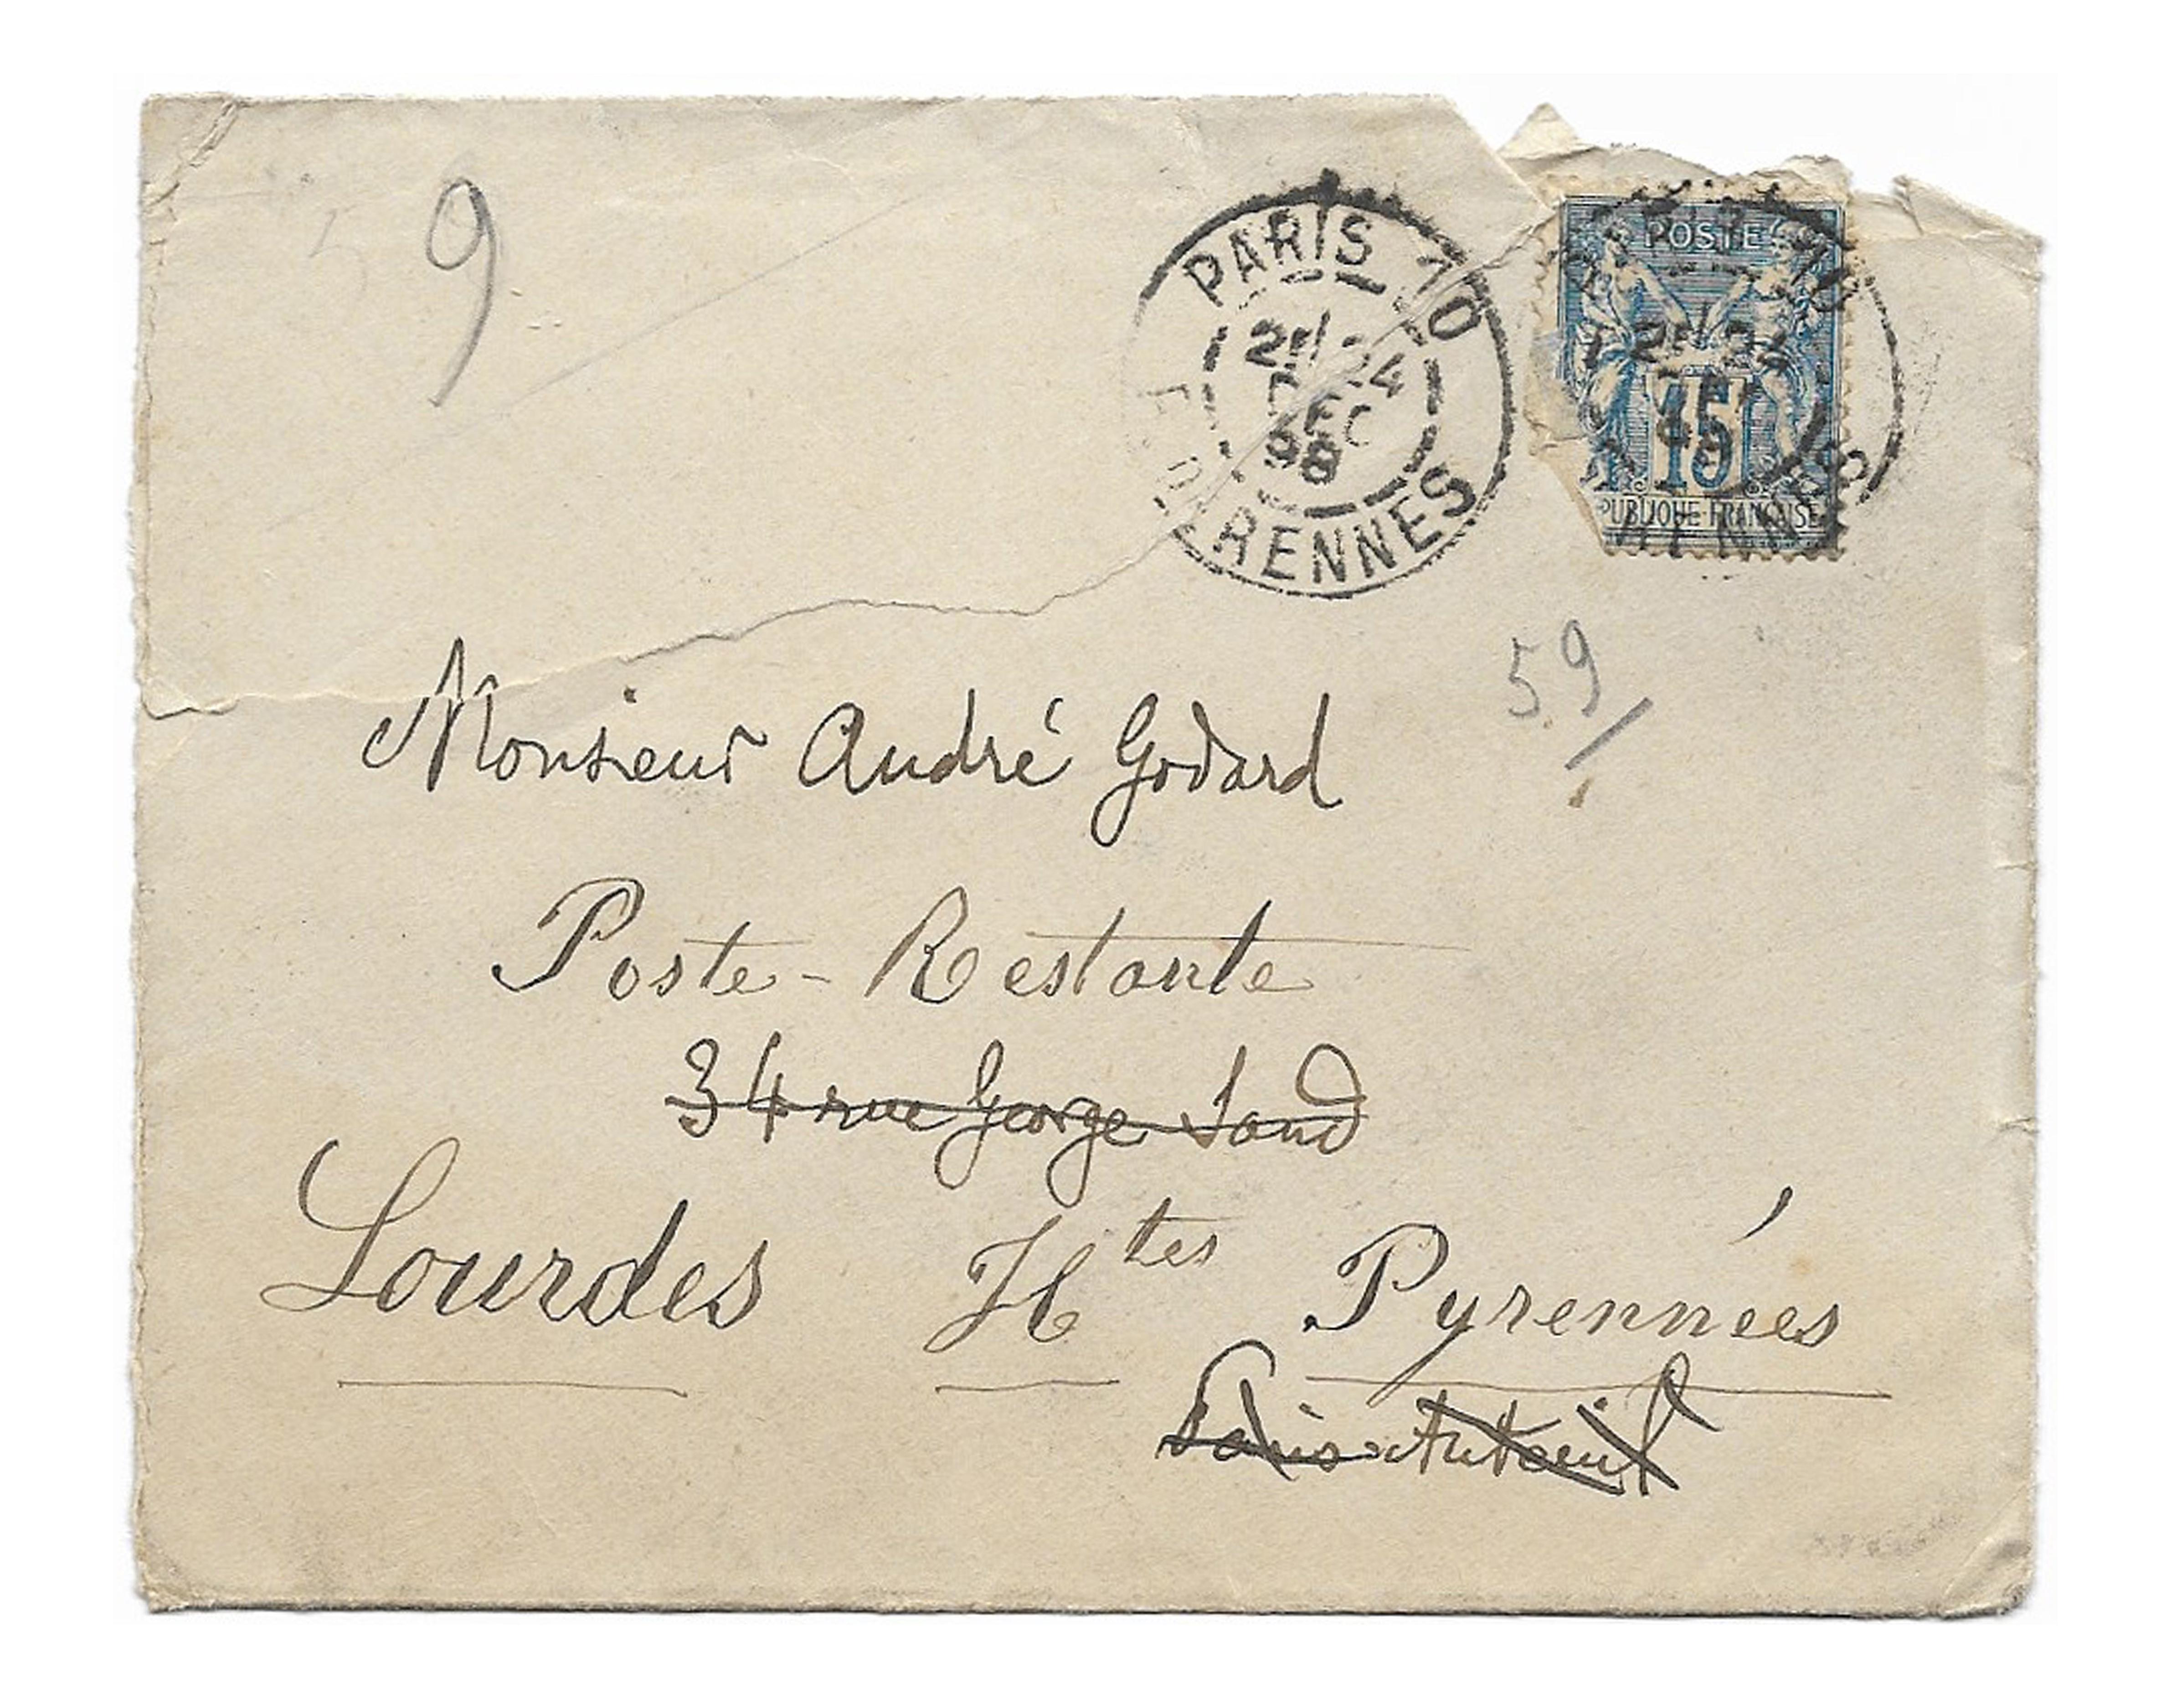 9
PARIS 10
24
DEC
98
R. DE RENNES
POSTE
15
PUBLIQUE FRANÇAISE
59/
Monsieur André Godard
Poste-Restante
34 rue George Sand
Lourdes Htes Pyrennées
Paris Auteuil